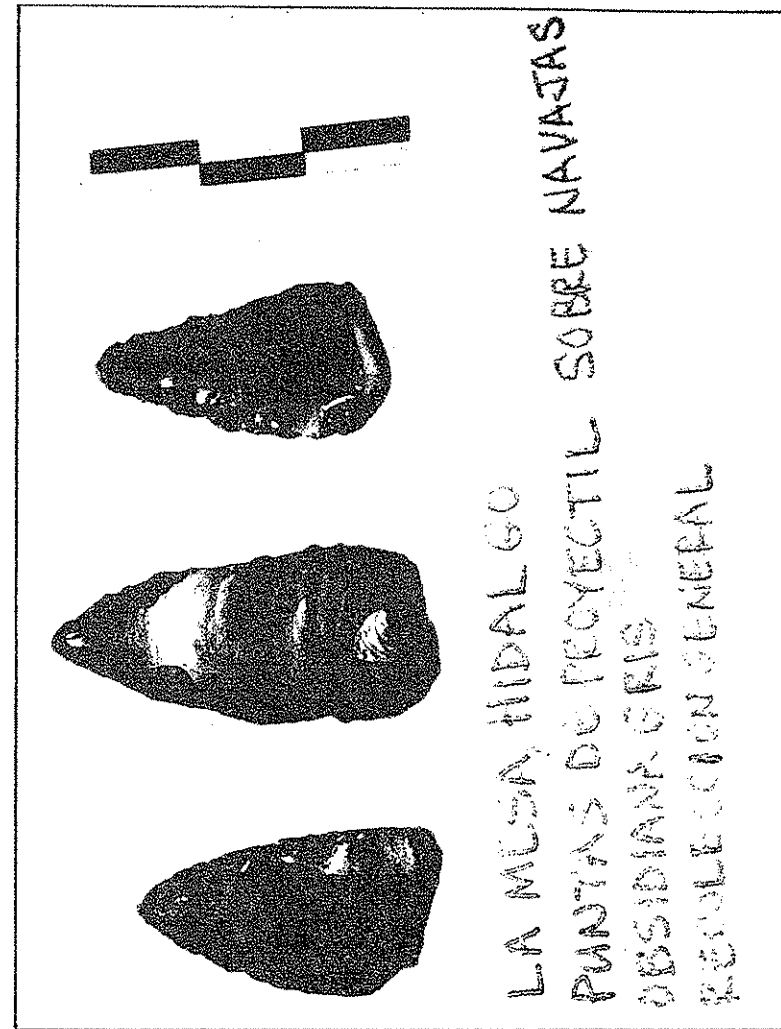 LA MESA, HIDALGO
PUNTAS DE PROYECTIL SOBRE NAVAJAS
OBSIDIANA GRIS
RECOLECCION GENERAL